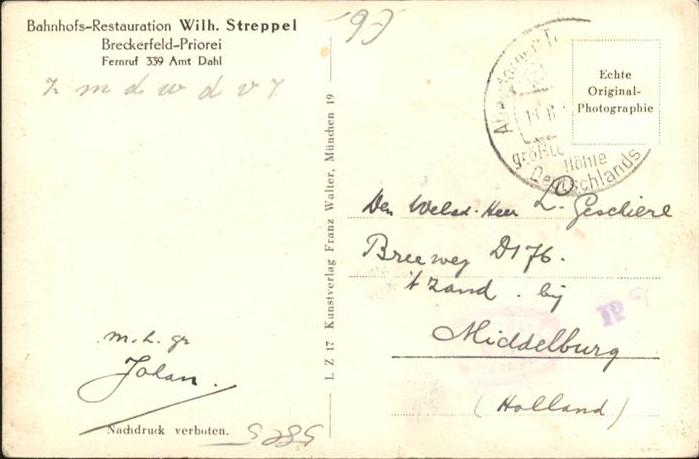 Bahnhofs-Restauration Wilh. Streppel
Breckerfeld-Priorei
Fernruf 339 Amt Dahl
z m d w d v t
m. h. gr
Johan.
Nachdruck verboten.
I. Z 17 Kunstverlag Franz Walter, München 19
Echte
Original-
Photographie
größte Höhle
Deutschlands
Den Weled. Heer L. Geschiere
Breeweg D176.
't Zand. bij
Middelburg
(Holland)